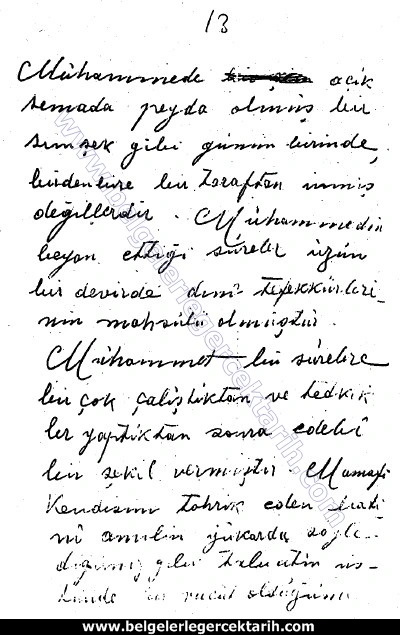 13
Mühammede açık
semada peyda olmuş bir
şimşek gibi günün birinde,
birdenbire bir taraftan inmiş
değillerdir. Mühammedin
beyan ettiği süreler üzün
bir devirde dinî tefekkürleri-
nin mahsülü olmuştür.
Mühammet bu sürelere
bir çok çalıştıktan ve tedkik
ler yaptıktan sonra edebî
bir şekil vermiştir. Mamafi
Kendisini tahrik eden
nî amilin yükarda söyle-
diğimiz gibi üs-
tünde bir vücüt oldüğünü
www.belgelerlegercektarih.com
www.belgelerlegercektarih.com